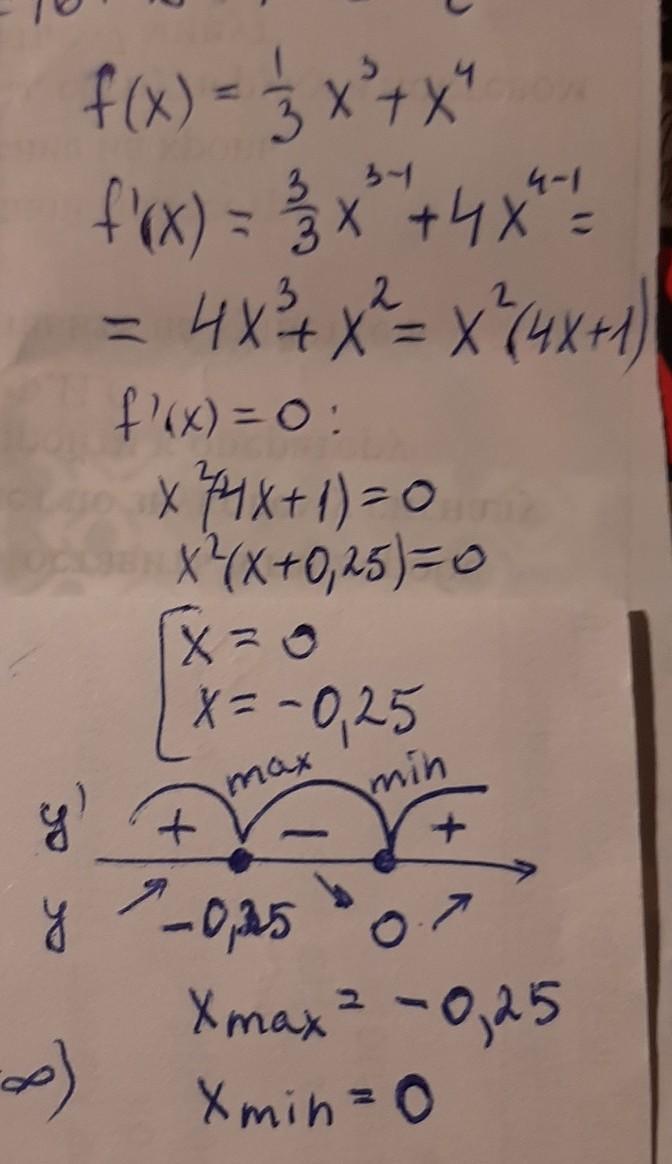 f(x) = 1/3 x³ + x⁴
f'(x) = 3/3 x³⁻¹ + 4x⁴⁻¹ =
= 4x³ + x² = x²(4x+1)
f'(x) = 0 :
x²(4x+1) = 0
x²(x+0,25) = 0
[ x = 0
x = -0,25
max min
y' + − +
y ↗ -0,25 ↘ 0 ↗
xmax = -0,25
∞) xmin = 0